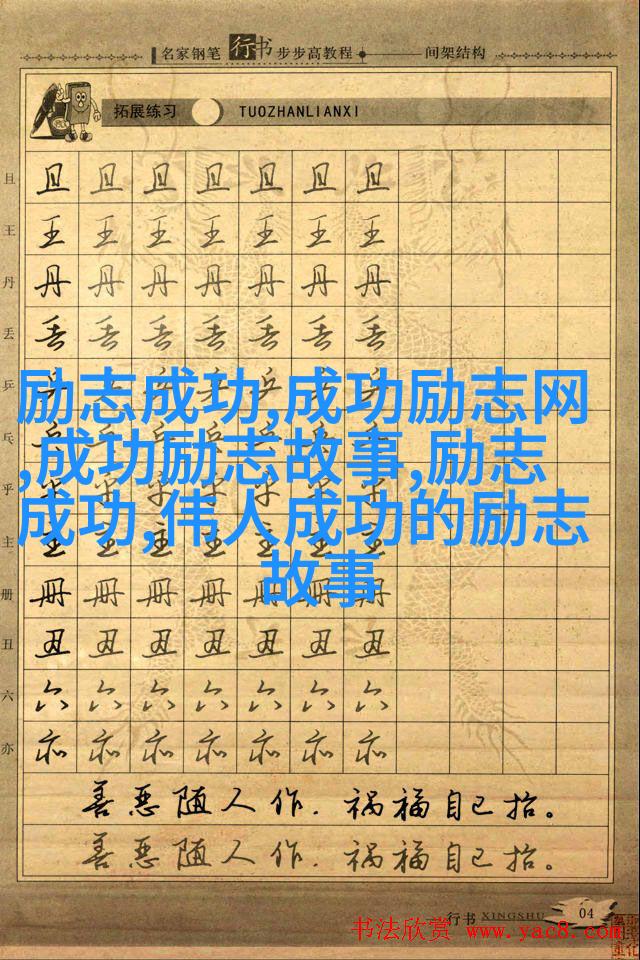 名家钢笔行书步步高教程 间架结构
拓展练习 TUOZHANLIANXI
且 且 且 且 且 且 且 且
王 王 王 王 王 王 王 王
丹 丹 丹 丹 丹 丹 丹 丹
丢 丢 丢 丢 丢 丢 丢 丢
乒
励志成功,成功励志网
乓
,成功励志故事,励志
乎
成功,伟人成功的励志
主 主 主 主 主 主 主 主
故事
册 册 册 册 册 册 册 册
丑 丑 丑 丑 丑 丑 丑 丑
六 六 六 六 六 六 六 六
亦 亦 亦 亦 亦 亦 亦 亦
善恶随人作.祸福自己招。
善恶随人作.祸福自己招。
行书 XINGSHU 04
书法欣赏 www.yac8.com